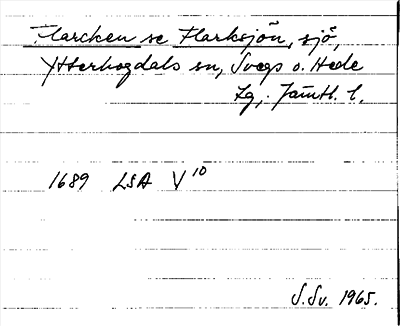 Flarcken se Flarksjön, sjö,
Ytterhogdals sn, Svegs o. Hede
tg, Jämtl. l.
1689 LSA V¹⁰
S.Sv. 1965.